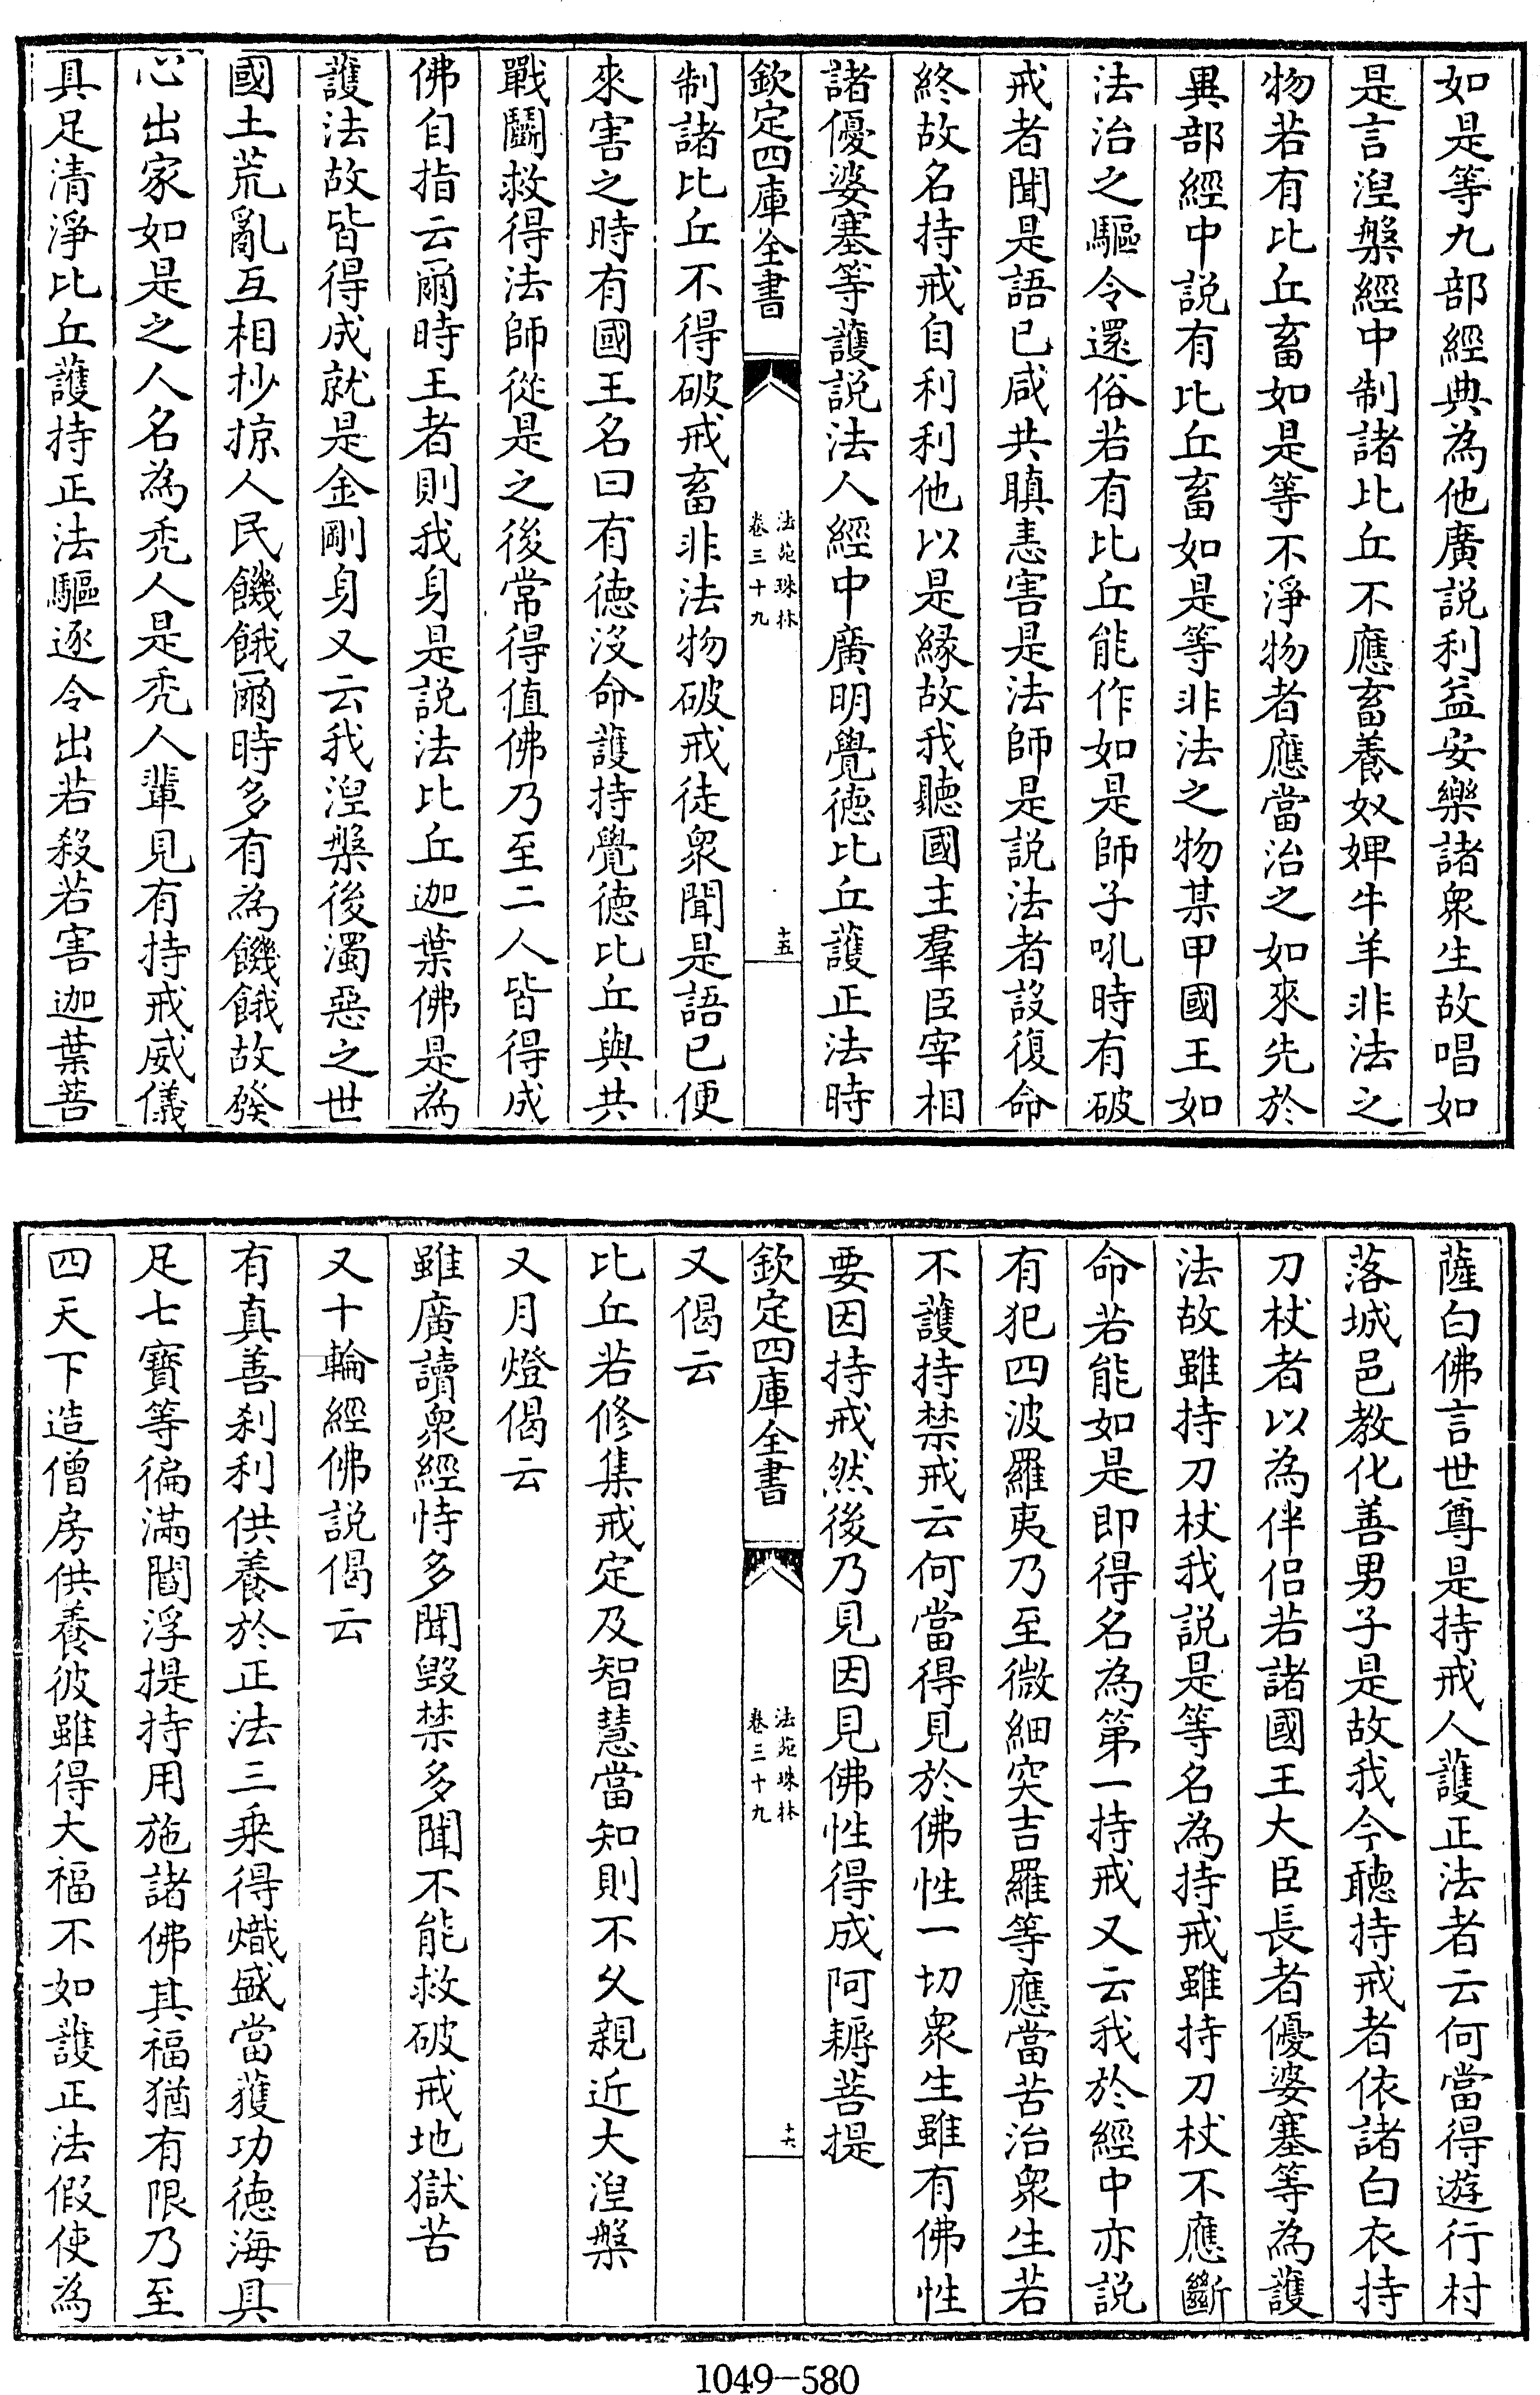 如是等九部經典為他廣説利益安樂諸衆生故唱如
是言湼槃經中制諸比丘不應畜養奴婢牛羊非法之
物若有比丘畜如是等不淨物者應當治之如來先於
異部經中説有比丘畜如是等非法之物某甲國王如
法治之驅令還俗若有比丘能作如是師子吼時有破
戒者聞是語已咸共瞋恚害是法師是説法者設復命
終故名持戒自利利他以是縁故我聽國主羣臣宰相
諸優婆塞等護説法人經中廣明覺徳比丘護正法時
欽定四庫全書
法苑珠林
卷三十九
十五
制諸比丘不得破戒畜非法物破戒徒衆聞是語已便
來害之時有國王名曰有徳没命護持覺徳比丘與共
戰鬭救得法師從是之後常得值佛乃至二人皆得成
佛自指云爾時王者則我身是説法比丘迦葉佛是為
護法故皆得成就是金剛身又云我湼槃後濁惡之世
國土荒亂互相抄掠人民饑餓爾時多有為饑餓故發
心出家如是之人名為秃人是秃人輩見有持戒威儀
具足清淨比丘護持正法驅逐令出若殺若害迦葉菩
薩白佛言世尊是持戒人護正法者云何當得遊行村
落城邑教化善男子是故我今聽持戒者依諸白衣持
刀杖者以為伴侣若諸國王大臣長者優婆塞等為護
法故雖持刀杖我説是等名為持戒雖持刀杖不應斷
命若能如是即得名為第一持戒又云我於經中亦説
有犯四波羅夷乃至微細突吉羅等應當苦治衆生若
不護持禁戒云何當得見於佛性一切衆生雖有佛性
要因持戒然後乃見因見佛性得成阿耨菩提
欽定四庫全書
法苑珠林
卷三十九
十六
又偈云
比丘若修集戒定及智慧當知則不久親近大湼槃
又月燈偈云
雖廣讀衆經恃多聞毁禁多聞不能救破戒地獄苦
又十輪經佛説偈云
有真善刹利供養於正法三乗得熾盛當獲功徳海具
足七寶等徧滿閻浮提持用施諸佛其福猶有限乃至
四天下造僧房供養彼雖得大福不如護正法假使為
1049-580